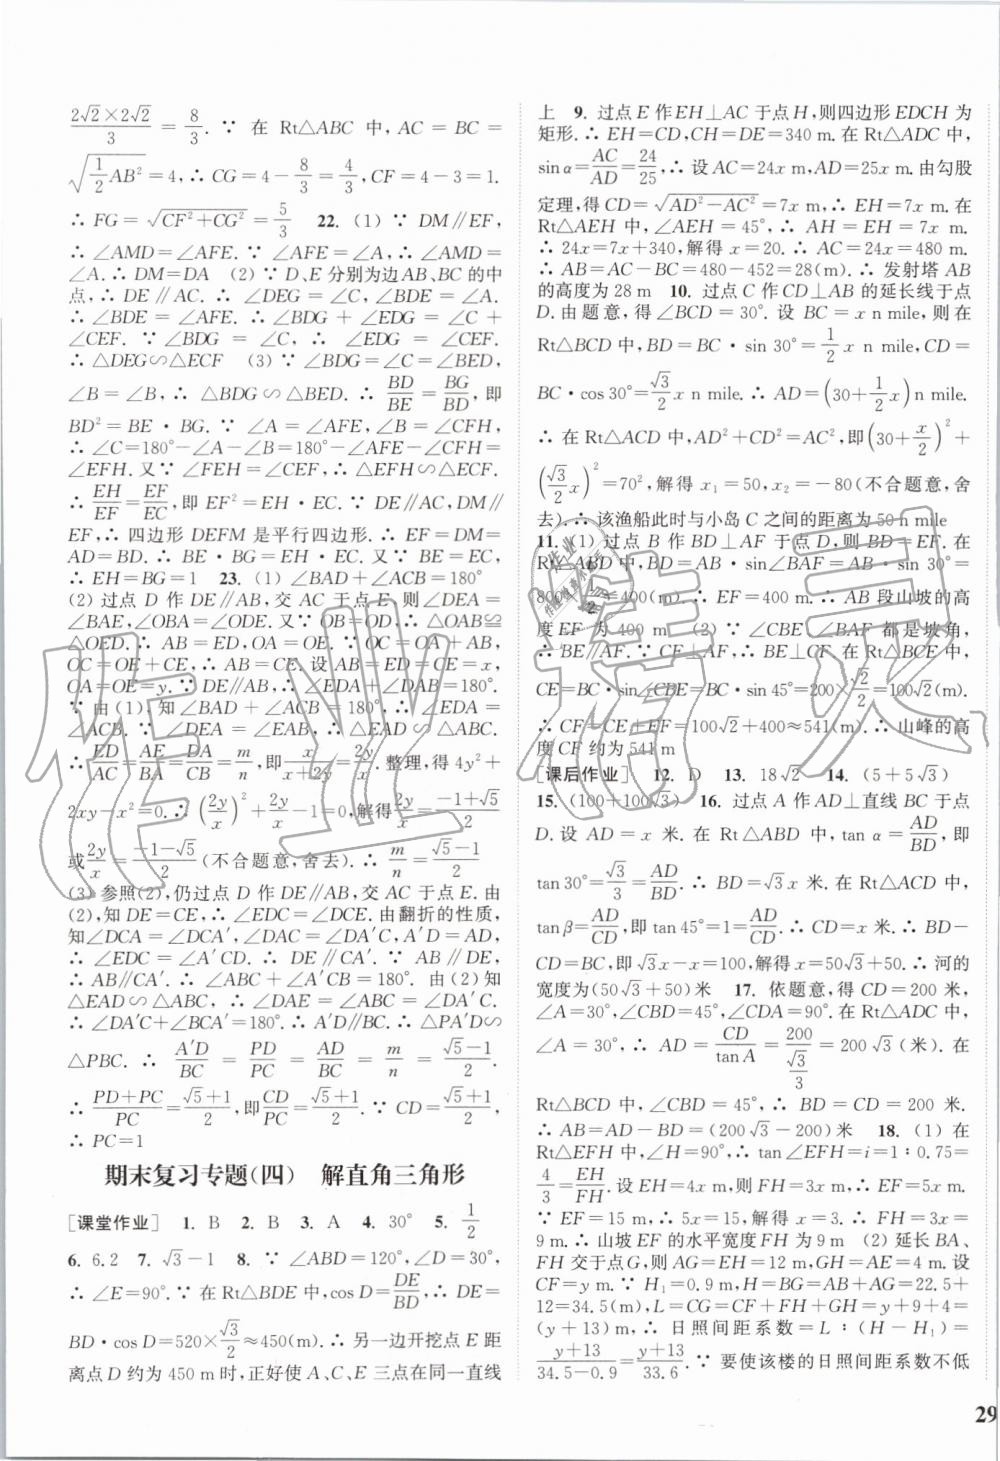 2√2×2√2/3 = 8/3. ∵ 在 Rt△ABC 中, AC = BC =
√(1/2 AB²) = 4, ∴ CG = 4 - 8/3 = 4/3, CF = 4 - 3 = 1.
∴ FG = √(CF²+CG²) = 5/3 22. (1) ∵ DM∥EF,
∴ ∠AMD = ∠AFE. ∵ ∠AFE = ∠A, ∴ ∠AMD =
∠A. ∴ DM=DA (2) ∵ D、E 分别为边AB、BC 的中
点, ∴ DE∥AC. ∴ ∠DEG = ∠C, ∠BDE = ∠A.
∴ ∠BDE = ∠AFE. ∴ ∠BDG + ∠EDG = ∠C +
∠CEF. ∵ ∠BDG = ∠C, ∴ ∠EDG = ∠CEF.
∴ △DEG∽△ECF (3) ∵ ∠BDG=∠C=∠BED,
∠B = ∠B, ∴ △BDG ∽ △BED. ∴ BD/BE = BG/BD, 即
BD² = BE · BG. ∵ ∠A = ∠AFE, ∠B = ∠CFH,
∴ ∠C=180°-∠A-∠B=180°-∠AFE-∠CFH=
∠EFH. 又∵ ∠FEH = ∠CEF, ∴ △EFH∽△ECF.
∴ EH/EF = EF/EC, 即 EF² = EH · EC. ∵ DE∥AC, DM∥
EF, ∴ 四边形 DEFM 是平行四边形. ∴ EF = DM =
AD = BD. ∴ BE · BG = EH · EC. ∵ BE = EC,
∴ EH=BG=1 23. (1) ∠BAD+∠ACB=180°
(2) 过点 D 作 DE∥AB, 交 AC 于点 E. ∴ ∠DEA =
∠BAE, ∠OBA = ∠ODE. 又∵ OB = OD, ∴ △OAB≌
△OED. ∴ AB = ED, OA = OE. ∵ OC = OA + AB,
OC = OE + CE, ∴ AB = CE. 设 AB = ED = CE = x,
OA=OE=y. ∵ DE∥AB, ∴ ∠EDA+∠DAB=180°.
∵ 由(1), 知∠BAD + ∠ACB = 180°, ∴ ∠EDA =
∠ACB. ∵ ∠DEA = ∠EAB, ∴ △EAD∽△ABC.
∴ ED/AC = AE/BA = DA/CB = m/n, 即 x/(x+2y) = 2y/x. 整理, 得 4y²+
2xy-x²=0. ∴ (2y/x)² + 2y/x - 1=0, 解得 2y/x = (-1+√5)/2
或 2y/x = (-1-√5)/2 (不合题意, 舍去). ∴ m/n = (√5-1)/2
(3) 参照(2), 仍过点 D 作 DE∥AB, 交 AC 于点 E. 由
(2), 知 DE=CE, ∴ ∠EDC=∠DCE. 由翻折的性质,
知∠DCA = ∠DCA′, ∠DAC = ∠DA′C, A′D = AD,
∴ ∠EDC = ∠A′CD. ∴ DE∥CA′. ∵ AB∥DE,
∴ AB∥CA′. ∴ ∠ABC+∠A′CB=180°. 由(2)知
△EAD∽△ABC, ∴ ∠DAE = ∠ABC = ∠DA′C.
∴ ∠DA′C+∠BCA′=180°. ∴ A′D∥BC. ∴ △PA′D∽
△PBC. ∴ A′D/BC = PD/PC = AD/BC = m/n = (√5-1)/2.
∴ (PD+PC)/PC = (√5+1)/2, 即 CD/PC = (√5+1)/2. ∵ CD = (√5+1)/2,
∴ PC=1
期末复习专题(四) 解直角三角形
[课堂作业] 1. B 2. B 3. A 4. 30° 5. 1/2
6. 6.2 7. √3-1 8. ∵ ∠ABD=120°, ∠D=30°,
∴ ∠E=90°. ∵ 在 Rt△BDE 中, cos D = DE/BD, ∴ DE =
BD · cos D=520× √3/2 ≈450(m). ∴ 另一边开挖点 E 距
离点 D 约为 450 m 时, 正好使 A、C、E 三点在同一直线
上 9. 过点 E 作 EH⊥AC 于点 H, 则四边形 EDCH 为
矩形. ∴ EH=CD, CH=DE=340 m. 在 Rt△ADC 中,
sin α = AC/AD = 24/25, ∴ 设 AC=24x m, AD=25x m. 由勾股
定理, 得 CD= √(AD²-AC²) =7x m, ∴ EH=7x m. 在
Rt△AEH 中, ∠AEH = 45°, ∴ AH = EH = 7x m.
∴ 24x=7x+340, 解得 x=20. ∴ AC=24x=480 m.
∴ AB=AC-BC=480-452=28(m). ∴ 发射塔 AB
的高度为 28 m 10. 过点 C 作 CD⊥AB 的延长线于点
D. 由题意, 得∠BCD = 30°. 设 BC = x n mile, 则在
Rt△BCD 中, BD=BC · sin 30°= 1/2 x n mile, CD=
BC · cos 30°= √3/2 x n mile. ∴ AD=(30+ 1/2 x) n mile.
∴ 在 Rt△ACD 中, AD²+CD²=AC², 即(30+ x/2)² +
(√3/2 x)² =70², 解得 x₁=50, x₂=-80(不合题意, 舍
去). ∴ 该渔船此时与小岛 C 之间的距离为 50 n mile
11. (1) 过点 B 作 BD⊥AF 于点 D, 则 BD=EF. 在
Rt△ABD 中, BD=AB · sin∠BAF=AB · sin 30°=
800× 1/2 =400(m). ∴ EF=400 m. ∴ AB 段山坡的高
度 EF 为 400 m (2) ∵ ∠CBE、∠BAF 都是坡角,
∴ BE∥AF. ∵ CE⊥AF, ∴ BE⊥CF. 在 Rt△BCE 中,
CE=BC · sin∠CBE=BC · sin 45°=200× √2/2 =100√2(m).
∴ CF=CE+EF=100√2+400≈541(m). ∴ 山峰的高
度 CF 约为 541 m
[课后作业] 12. D 13. 18√2 14. (5+5√3)
15. (100+100√3) 16. 过点 A 作 AD⊥直线 BC 于点
D. 设 AD = x 米. 在 Rt△ABD 中, tan α = AD/BD, 即
tan 30°= √3/3 = AD/BD. ∴ BD=√3x 米. 在 Rt△ACD 中,
tan β= AD/CD, 即 tan 45°=1= AD/CD. ∴ CD=x 米. ∴ BD-
CD=BC, 即√3x-x=100, 解得 x=50√3+50. ∴ 河的
宽度为(50√3+50)米 17. 依题意, 得 CD=200 米,
∠A=30°, ∠CBD=45°, ∠CDA=90°. 在 Rt△ADC 中,
∠A = 30°, ∴ AD = CD/tan A = 200/(√3/3) = 200√3 (米). 在
Rt△BCD 中, ∠CBD = 45°, ∴ BD = CD = 200 米.
∴ AB=AD-BD=(200√3-200)米 18. (1) 在
Rt△EFH 中, ∠H=90°, ∴ tan∠EFH=i=1∶0.75=
4/3 = EH/FH. 设 EH=4x m, 则 FH=3x m, ∴ EF=5x m.
∵ EF=15 m, ∴ 5x=15, 解得 x=3. ∴ FH=3x=
9 m. ∴ 山坡 EF 的水平宽度 FH 为 9 m (2) 延长 BA、
FH 交于点 G, 则 AG=EH=12 m, GH=AE=4 m. 设
CF=y m. ∵ H₁=0.9 m, H=BG=AB+AG=22.5+
12=34.5(m), L=CG=CF+FH+GH=y+9+4=
(y+13)m, ∴ 日照间距系数=L∶(H-H₁)=
(y+13)/(34.5-0.9) = (y+13)/33.6. ∵ 要使该楼的日照间距系数不低
29